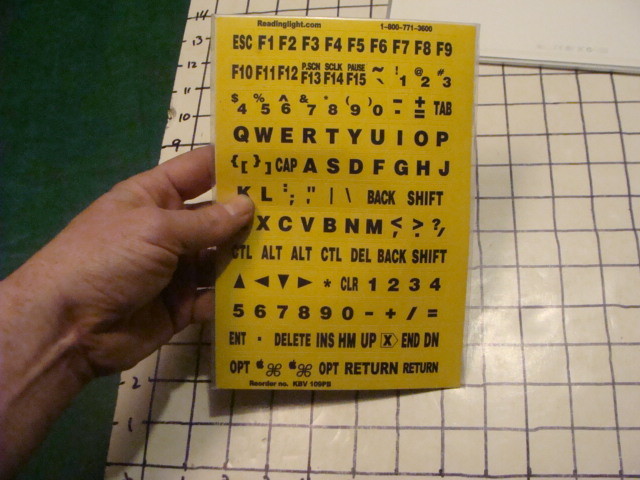 Readinglight.com 1-800-771-3600
ESC F1 F2 F3 F4 F5 F6 F7 F8 F9
P.SCN SCLK PAUSE ~ ! @ #
F10 F11 F12 F13 F14 F15 ` 1 2 3
$ % ^ & * ( ) - ±
4 5 6 7 8 9 0 - = TAB
Q W E R T Y U I O P
{ [ } ] CAP A S D F G H J
K L : ; " | \ BACK SHIFT
X C V B N M < , > . ? /
CTL ALT ALT CTL DEL BACK SHIFT
▲ ◄ ▼ ► * CLR 1 2 3 4
5 6 7 8 9 0 - + / =
ENT . DELETE INS HM UP X END DN
OPT ⌘ ⌘ OPT RETURN RETURN
Reorder no. KBV 109PB
14
13
12
11
10
9
2
1